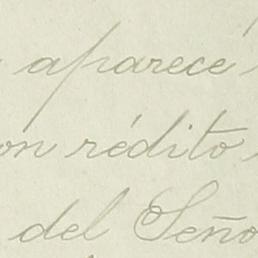 aparecé
on rédito
del Seño